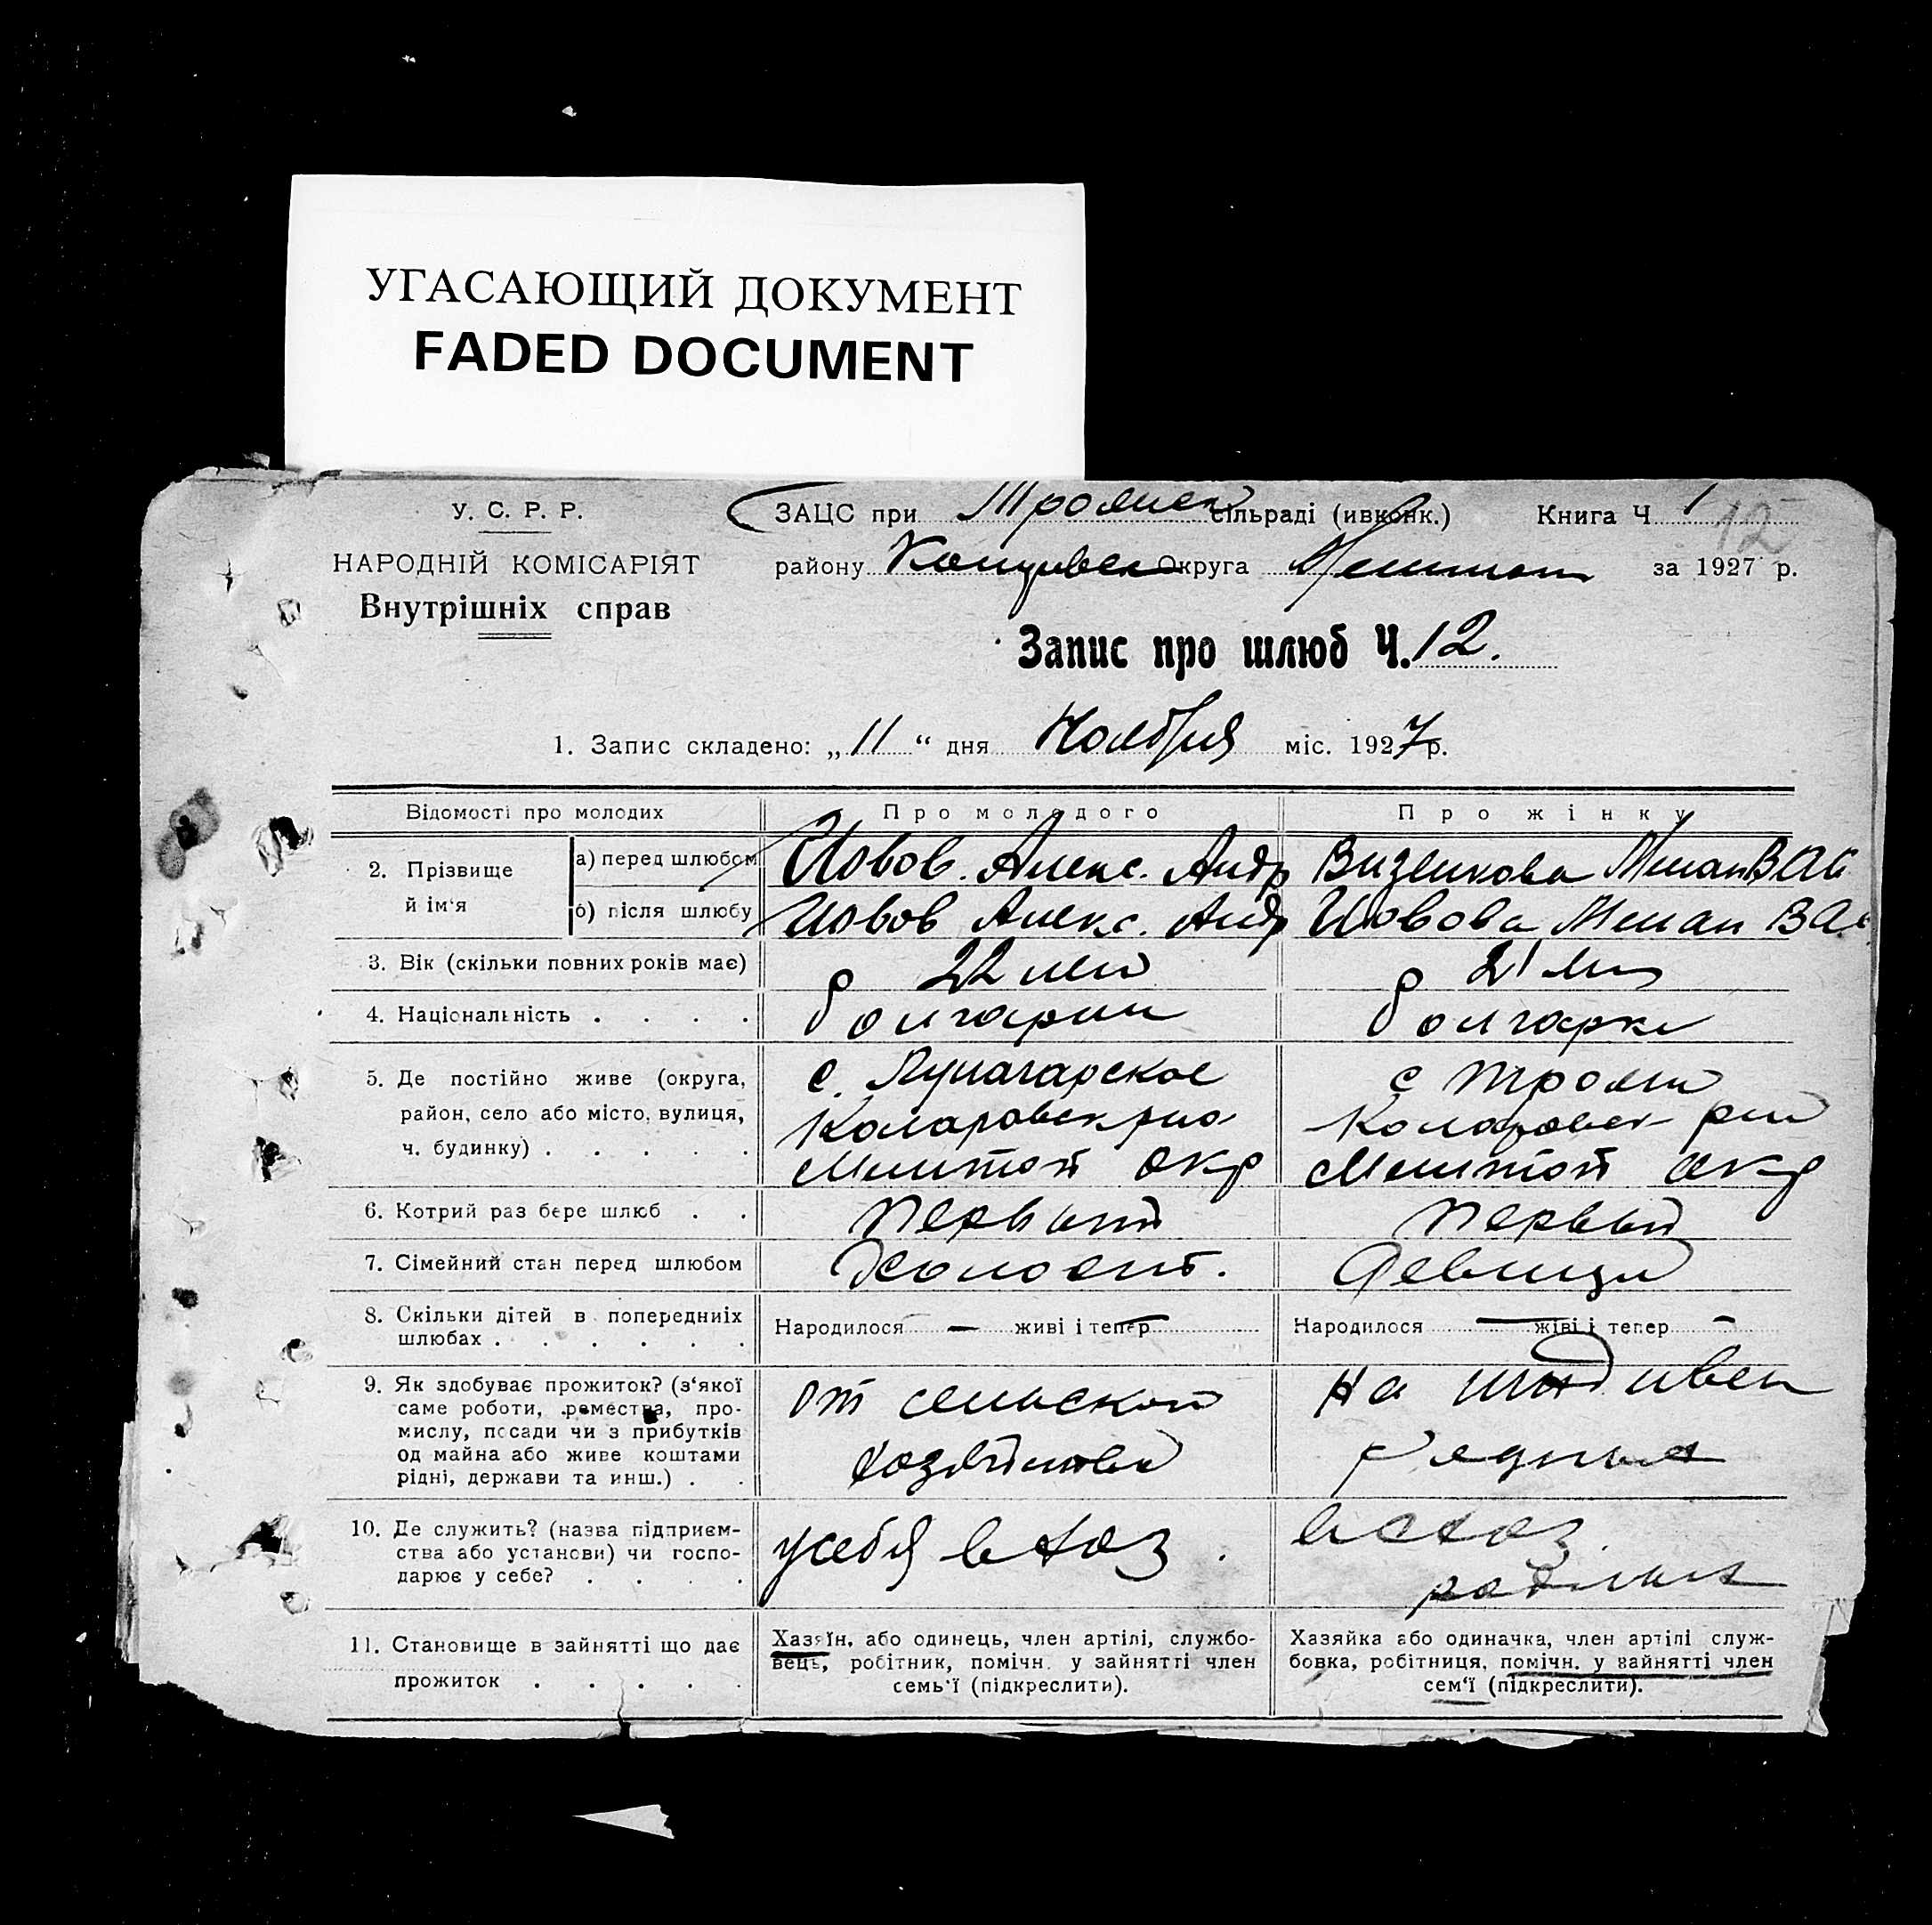 УГАСАЮЩИЙ ДОКУМЕНТ
FADED DOCUMENT
У. С. Р. Р.
НАРОДНІЙ КОМІСАРІЯТ
Внутрішніх справ
ЗАЦС при Троянск сільраді (ивконк.) Книга Ч 1
12
району Округа за 1927 р.
Запис про шлюб Ч. 12.
1. Запис складено: „11“ дня Ноября міс. 1927 р.
Відомості про молодих Про молодого Про жінку
2. Прізвище й ім‘я
а) перед шлюбом Иовов. Алекс. Андр Мелан Вас
б) після шлюбу Иовов Алекс. Андр Иовова Мелан Вас.
3. Вік (скільки повних років має) 22 лет 21 лет
4. Національність . . . . болгарин болгарка
5. Де постійно живе (округа, с. Луначарское с Троян
район, село або місто, вулиця, Коларовск рио Коларовск рио
ч. будинку) . . . . . Мелитоп окр Мелитоп окр
6. Котрий раз бере шлюб . . первый первый
7. Сімейний стан перед шлюбом Холост. Девица
8. Скільки дітей в попередніх Народилося — живі і тепер — Народилося — живі і тепер —
шлюбах . . . . . .
9. Як здобуває прожиток? (з‘якої от сельского на иждивен
саме роботи, ремества, про-
мислу, посади чи з прибутків
од майна або живе коштами хозяйства родных
рідні, держави та инш.) . .
10. Де служить? (назва підприєм- у себя в хоз. в схоз.
ства або установи) чи госпо-
дарює у себе? . . . . родных
11. Становище в зайнятті що дає
прожиток . . . . .
Хазяїн, або одинець, член артілі, службо-
вець, робітник, помічн. у зайнятті член
семь‘ї (підкреслити).
Хазяйка або одиначка, член артілі служ-
бовка, робітниця, помічн. у зайнятті член
сем‘ї (підкреслити).